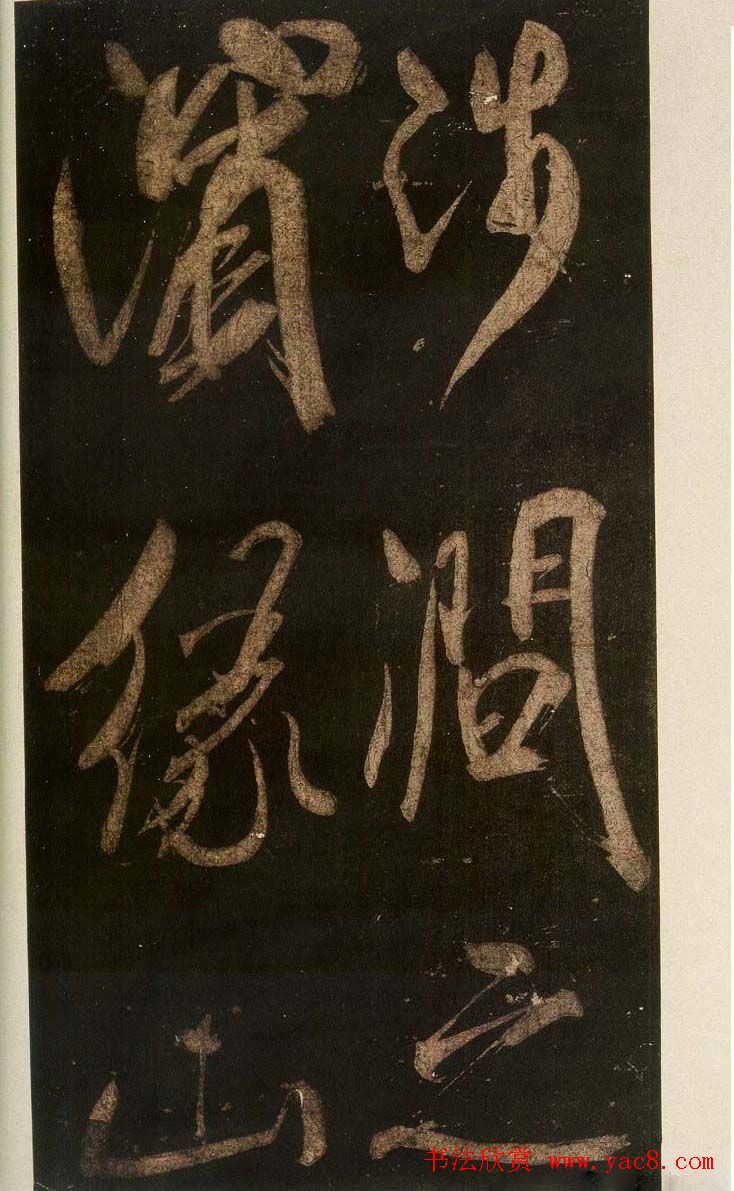 涉澗之
濱緣山
书法欣赏 www.yac8.com